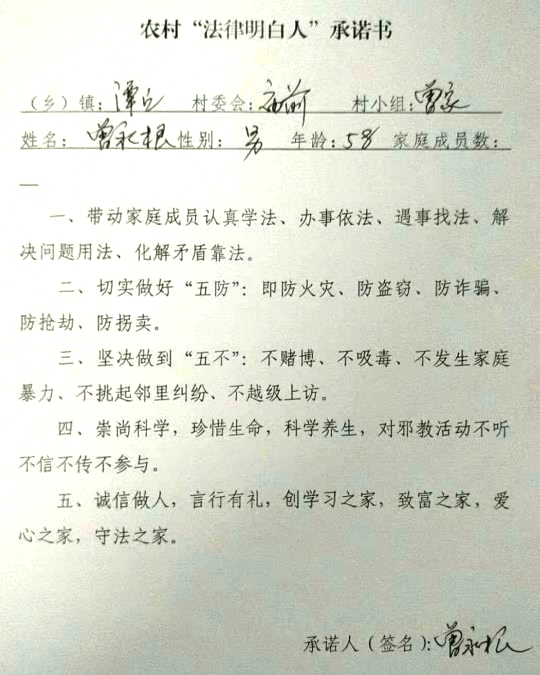 农村“法律明白人”承诺书
（乡）镇：潭丘 村委会：前 村小组：曾家
姓名：曾永根 性别：男 年龄：58 家庭成员数：
一、带动家庭成员认真学法、办事依法、遇事找法、解
决问题用法、化解矛盾靠法。
二、切实做好“五防”：即防火灾、防盗窃、防诈骗、
防抢劫、防拐卖。
三、坚决做到“五不”：不赌博、不吸毒、不发生家庭
暴力、不挑起邻里纠纷、不越级上访。
四、崇尚科学，珍惜生命，科学养生，对邪教活动不听
不信不传不参与。
五、诚信做人，言行有礼，创学习之家，致富之家，爱
心之家，守法之家。
承诺人（签名）：曾永根